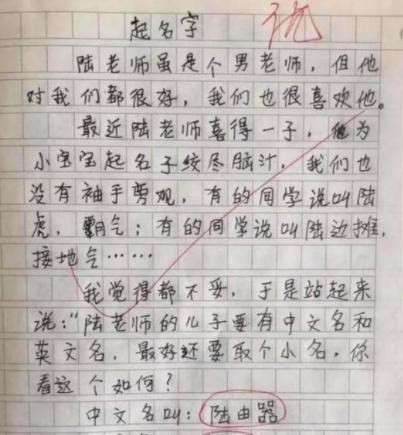 起名字
陆老师虽是个男老师，但他
对我们都很好，我们也很喜欢他。
最近陆老师喜得一子，他为
小宝宝起名子绞尽脑汁，我们也
没有袖手旁观，有的同学说叫陆
虎，霸气；有的同学说叫陆边摊，
接地气……
我觉得都不妥，于是站起来
说：“陆老师的儿子要有中文名和
英文名，最好还要取个小名，你
看这个如何？
中文名叫：陆由器